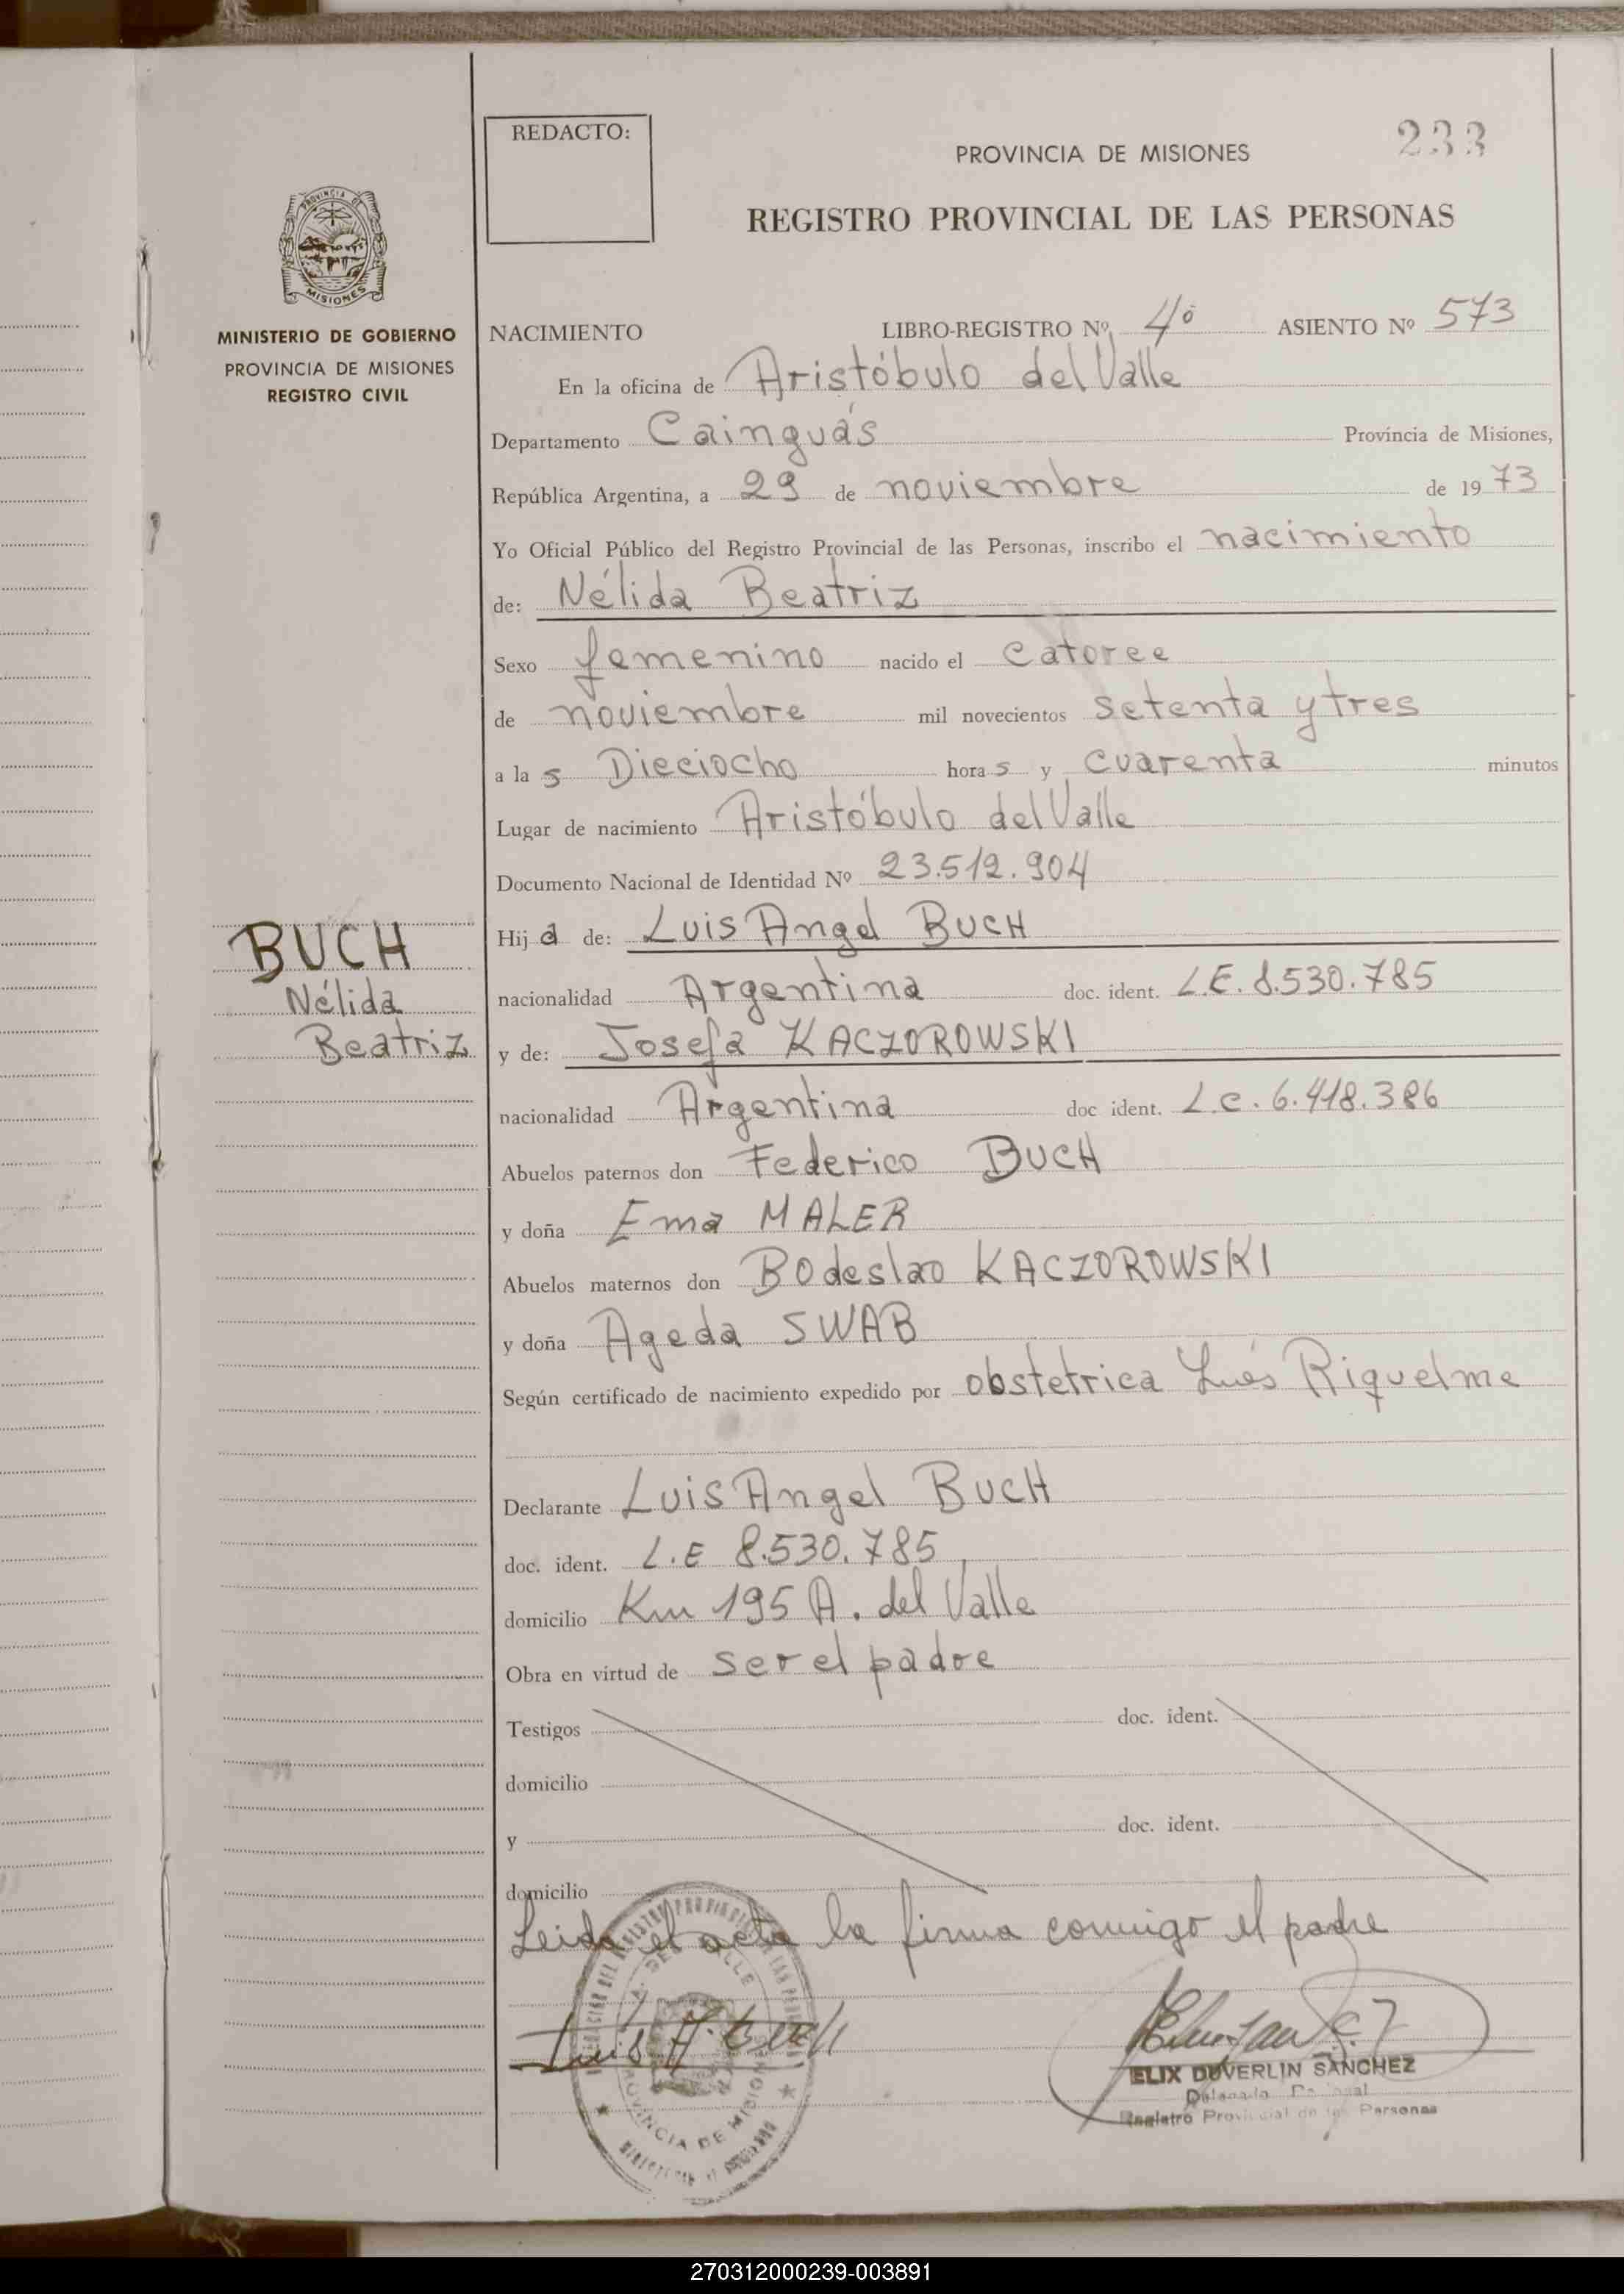 REDACTO:
PROVINCIA DE MISIONES
233
REGISTRO PROVINCIAL DE LAS PERSONAS
PROVINCIA DE
MISIONES
MINISTERIO DE GOBIERNO
PROVINCIA DE MISIONES
REGISTRO CIVIL
NACIMIENTO LIBRO-REGISTRO Nº 4º ASIENTO Nº 573
En la oficina de Aristóbulo del Valle
Departamento Cainguás Provincia de Misiones,
República Argentina, a 29 de noviembre de 1973
Yo Oficial Público del Registro Provincial de las Personas, inscribo el nacimiento
de: Nélida Beatriz
Sexo femenino nacido el catorce
de noviembre mil novecientos setenta y tres
a las Dieciocho horas y cuarenta minutos
Lugar de nacimiento Aristóbulo del Valle
Documento Nacional de Identidad Nº 23.512.904
BUCH
Nélida
Beatriz
Hija de: Luis Angel BUCH
nacionalidad Argentina doc. ident. L.E. 8.530.785
y de: Josefa KACZOROWSKI
nacionalidad Argentina doc ident. L.C. 6.418.386
Abuelos paternos don Federico BUCH
y doña Ema MALER
Abuelos maternos don BOdeslao KACZOROWSKI
y doña Ageda SWAB
Según certificado de nacimiento expedido por obstetrica Inés Riquelme
Declarante Luis Angel BUCH
doc. ident. L.E 8.530.785
domicilio Km 195 A. del Valle
Obra en virtud de ser el padre
Testigos doc. ident.
domicilio
y doc. ident.
domicilio
Leida el acta la firma conmigo el padre
Luis A. Buch
ELIX DUVERLIN SANCHEZ
Registro Provincial de las Personas
PROVINCIA DE MISIONES
270312000239-003891